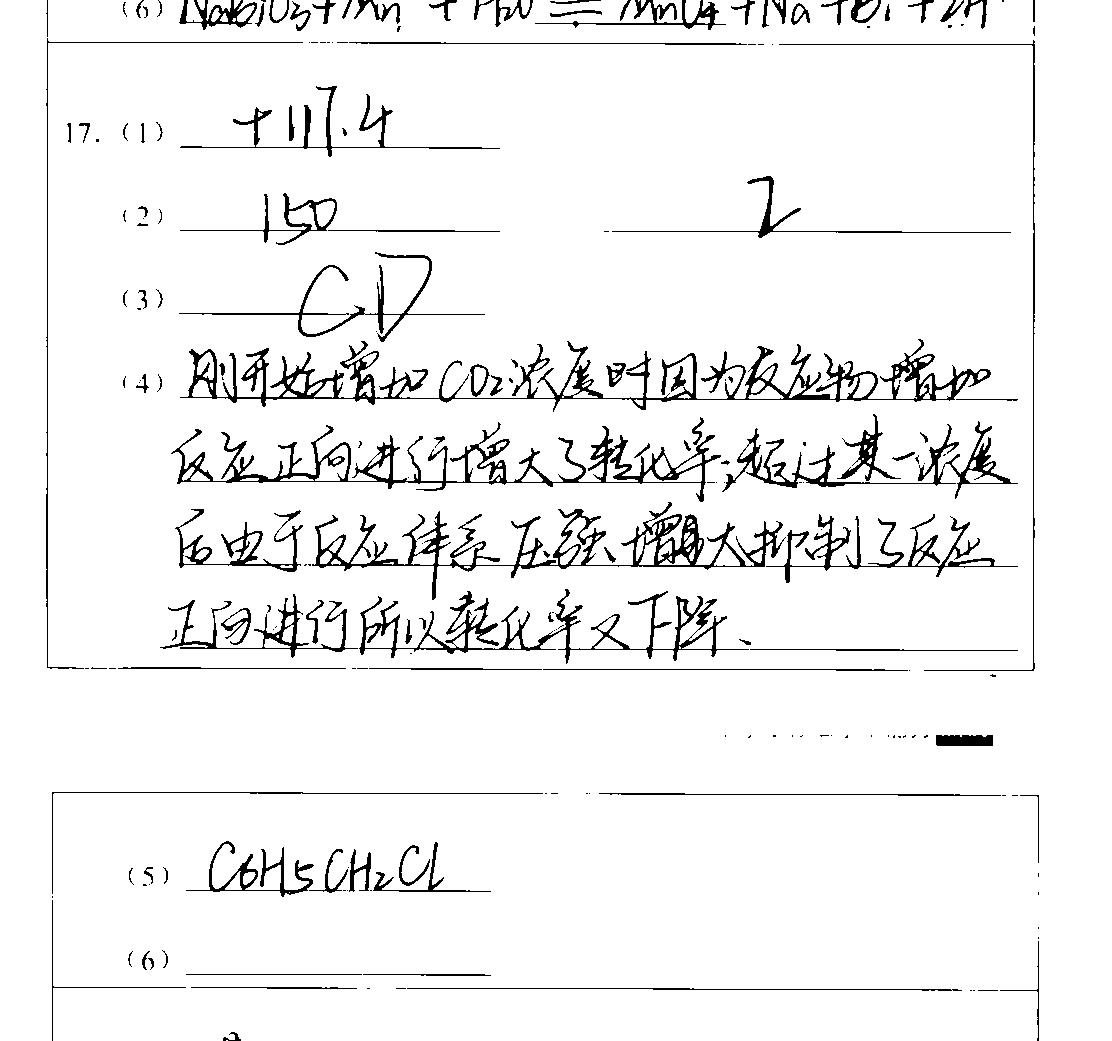 (6) NaBiO3+Mn + H2O ⇌ MnO4 +Na +Bi +2H+
17. (1) +117.4
(2) 150 2
(3) CD
(4) 刚开始增加CO2浓度时因为反应物增加
反应正向进行增大了转化率;超过某一浓度
后由于反应体系压强增大抑制了反应
正向进行所以转化率又下降、
(5) C6H5CH2Cl
(6)